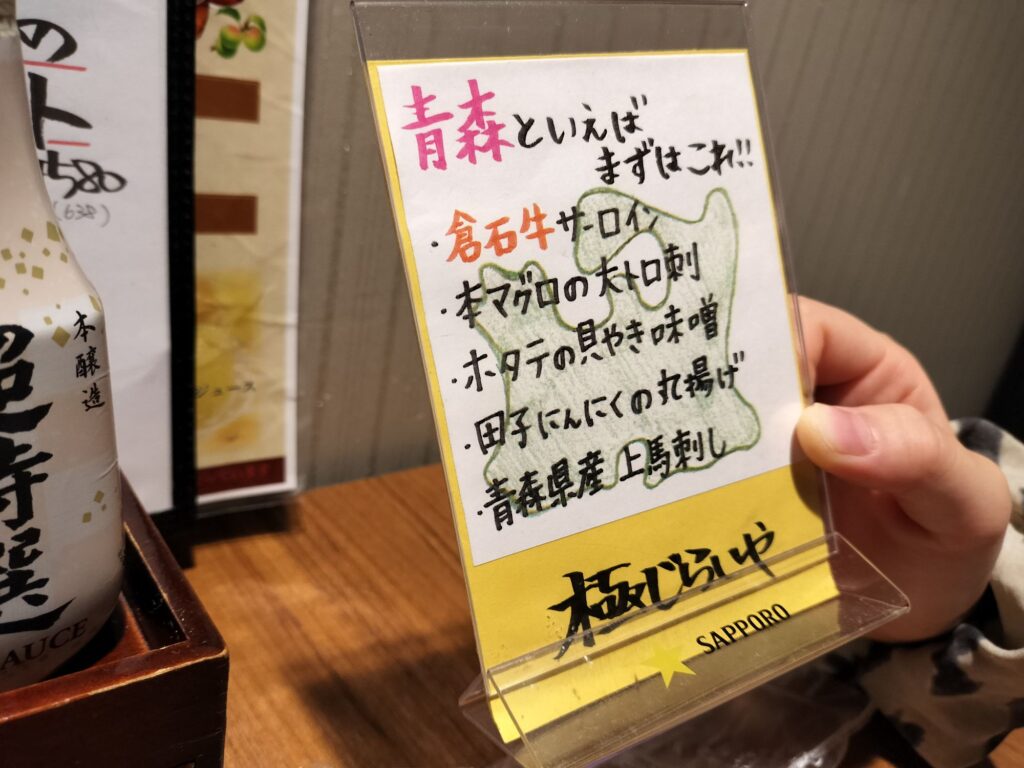 青森といえば
まずはこれ!!
・倉石牛サーロイン
・本マグロの大トロ刺
・ホタテの貝やき味噌
・田子にんにくの丸揚げ
・青森県産上馬刺し
極じらいや
SAPPORO
の
ト
580
(638)
ジュース
本醸造
の超特選
SAUCE